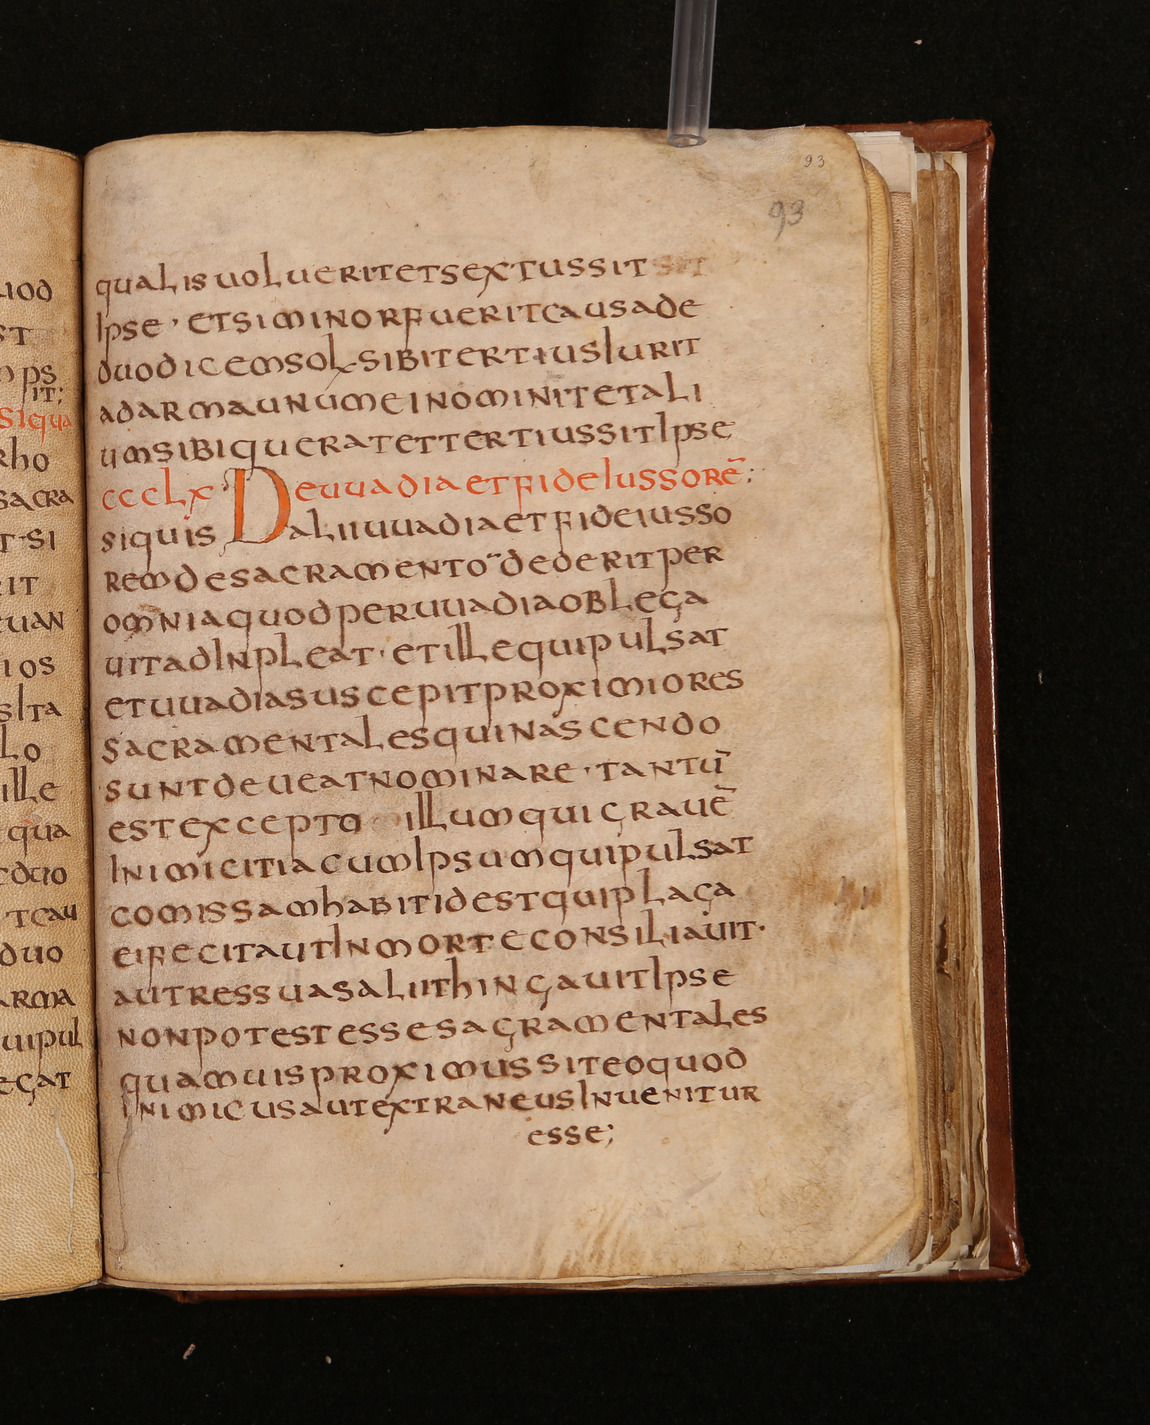 93
93
qualis uoluerit et sextus sit
Ipse · et si minor fuerit causa de
duodicem sol · sibi tertius Iurit
ad arma unum ei nominit et ali
um sibi querat et tertius sit Ipse
ccclx · De uuadia et fideIussorē;
siquis Dalii uuadia et fideiusso
rem de sacramento dederit per
omnia quod per uuadia obliga
uit adInpleat · et ille qui pulsat
et uuadia suscepit proximiores
sacramentales qui nascendo
sunt deueat nominare · tantū
est excepto illum qui grauē
Inimicitia cum Ipsum qui pulsat
comissam habit id est qui plaga
ei fecit aut In morte consiliauit·
aut res suas alii thingauit Ipse
non potest esse sagramentales
quamuis proximus sit eo quod
Inimicus aut extraneus Inuenitur
esse;